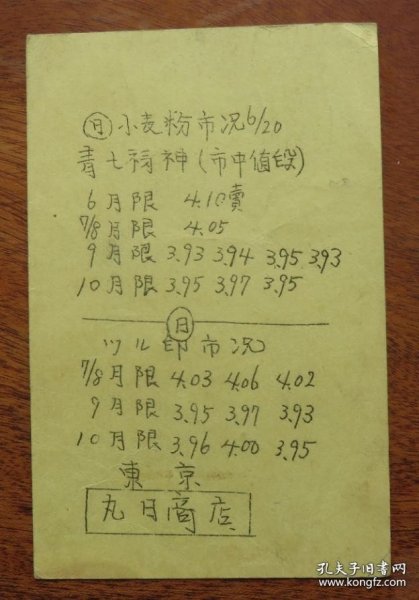 ㊐小麦粉市況6/20
青七福神(市中値段)
6月限 4.10賣
7/8月限 4.05
9月限 3.93 3.94 3.95 3.93
10月限 3.95 3.97 3.95
日
ツル印市況
7/8月限 4.03 4.06 4.02
9月限 3.95 3.97 3.93
10月限 3.96 4.00 3.95
東京
丸日商店
孔夫子旧书网
www.kongfz.com